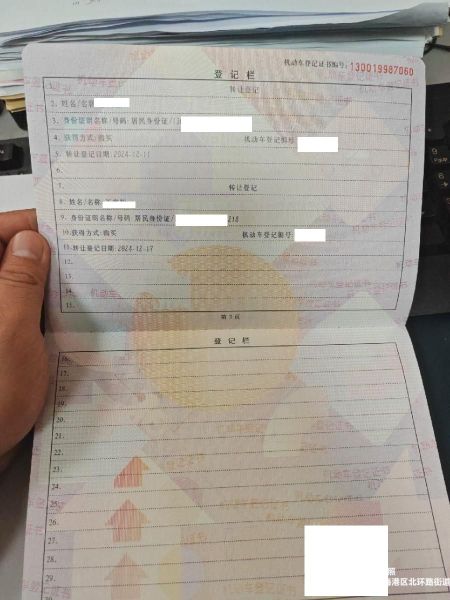 机动车登记证书编号: 130019987060
登记栏
1. 转让登记
2. 姓名/名称
3. 身份证明名称/号码: 居民身份证/
4. 获得方式: 购买 机动车登记编号:
5. 转让登记日期: 2024-12-11
6.
7. 转让登记
8. 姓名/名称:
9. 身份证明名称/号码: 居民身份证/ 218
10. 获得方式: 购买 机动车登记编号:
11. 转让登记日期: 2024-12-17
12.
13.
14.
15.
第 3 页
登记栏
16.
17.
18.
19.
20.
21.
22.
23.
24.
25.
26.
27.
28.
29.
照
海港区北环路街道